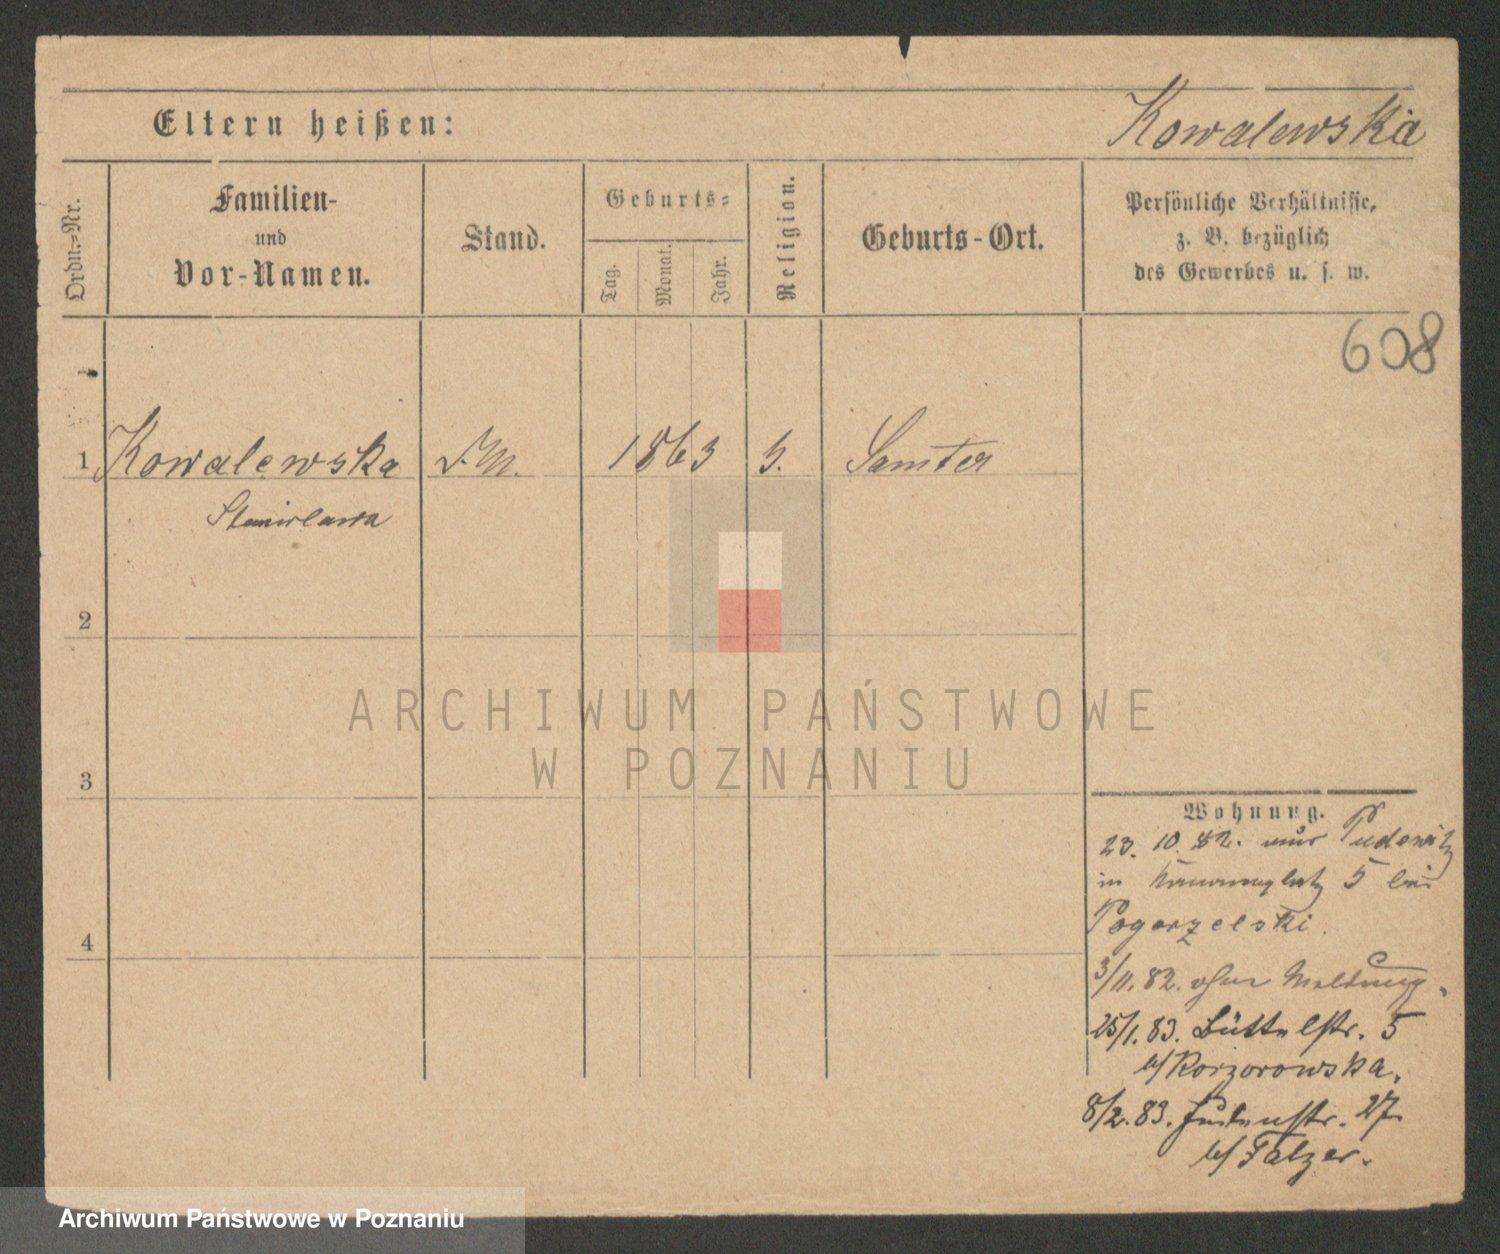 Eltern heißen:
Kowalewska
Ordn.-Nr.
Familien-
und
Vor-Namen.
Stand.
Geburts-
Tag.
Monat.
Jahr.
Religion.
Geburts-Ort.
Persönliche Verhältnisse,
z. B. bezüglich
des Gewerbes u. s. w.
608
1 Kowalewska D.M. 1863 Samter
Stanislawa
2
3
4
ARCHIWUM PAŃSTWOWE
W POZNANIU
Wohnung.
23. 10. 82. aus Pudewitz
in 5 bei
Pogorzelski.
3/11. 82. ohne Meldung.
25/1. 83. Büttelstr. 5
b/ Korzorowska.
8/2. 83. Judenstr. 27.
b/ Falzer.
Archiwum Państwowe w Poznaniu